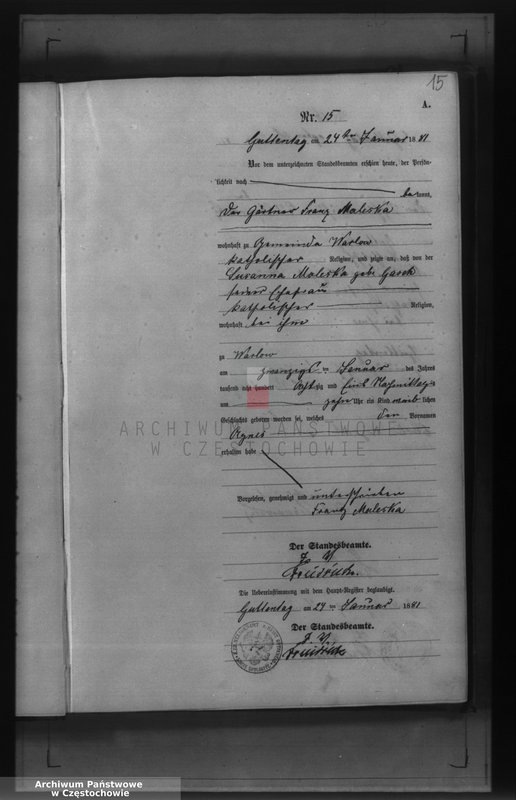 15
A.
Nr. 15
Guttentag am 24ten Januar 1881
Vor dem unterzeichneten Standesbeamten erschien heute, der Persön-
lichkeit nach
bekannt,
Der Gärtner Franz Maleska
wohnhaft zu Gemeinde Warlow
katholischer Religion, und zeigte an, daß von der
Susanna Maleska geb. Gasch
seiner Ehefrau
katholischer Religion,
wohnhaft bei ihm
zu Warlow
am zwanzigsten Januar des Jahres
tausend acht hundert Achtzig und Eins Nachmittags
um zehn Uhr ein Kind weiblichen
Geschlechts geboren worden sei, welches den Vornamen
Agnes
erhalten habe
Vorgelesen, genehmigt und unterschrieben
Franz Maleska
Der Standesbeamte.
Die Uebereinstimmung mit dem Haupt-Register beglaubigt.
Guttentag am 24ten Januar 1881
Der Standesbeamte.
ARCHIWUM PAŃSTWOWE
W CZĘSTOCHOWIE
Archiwum Państwowe
w Częstochowie